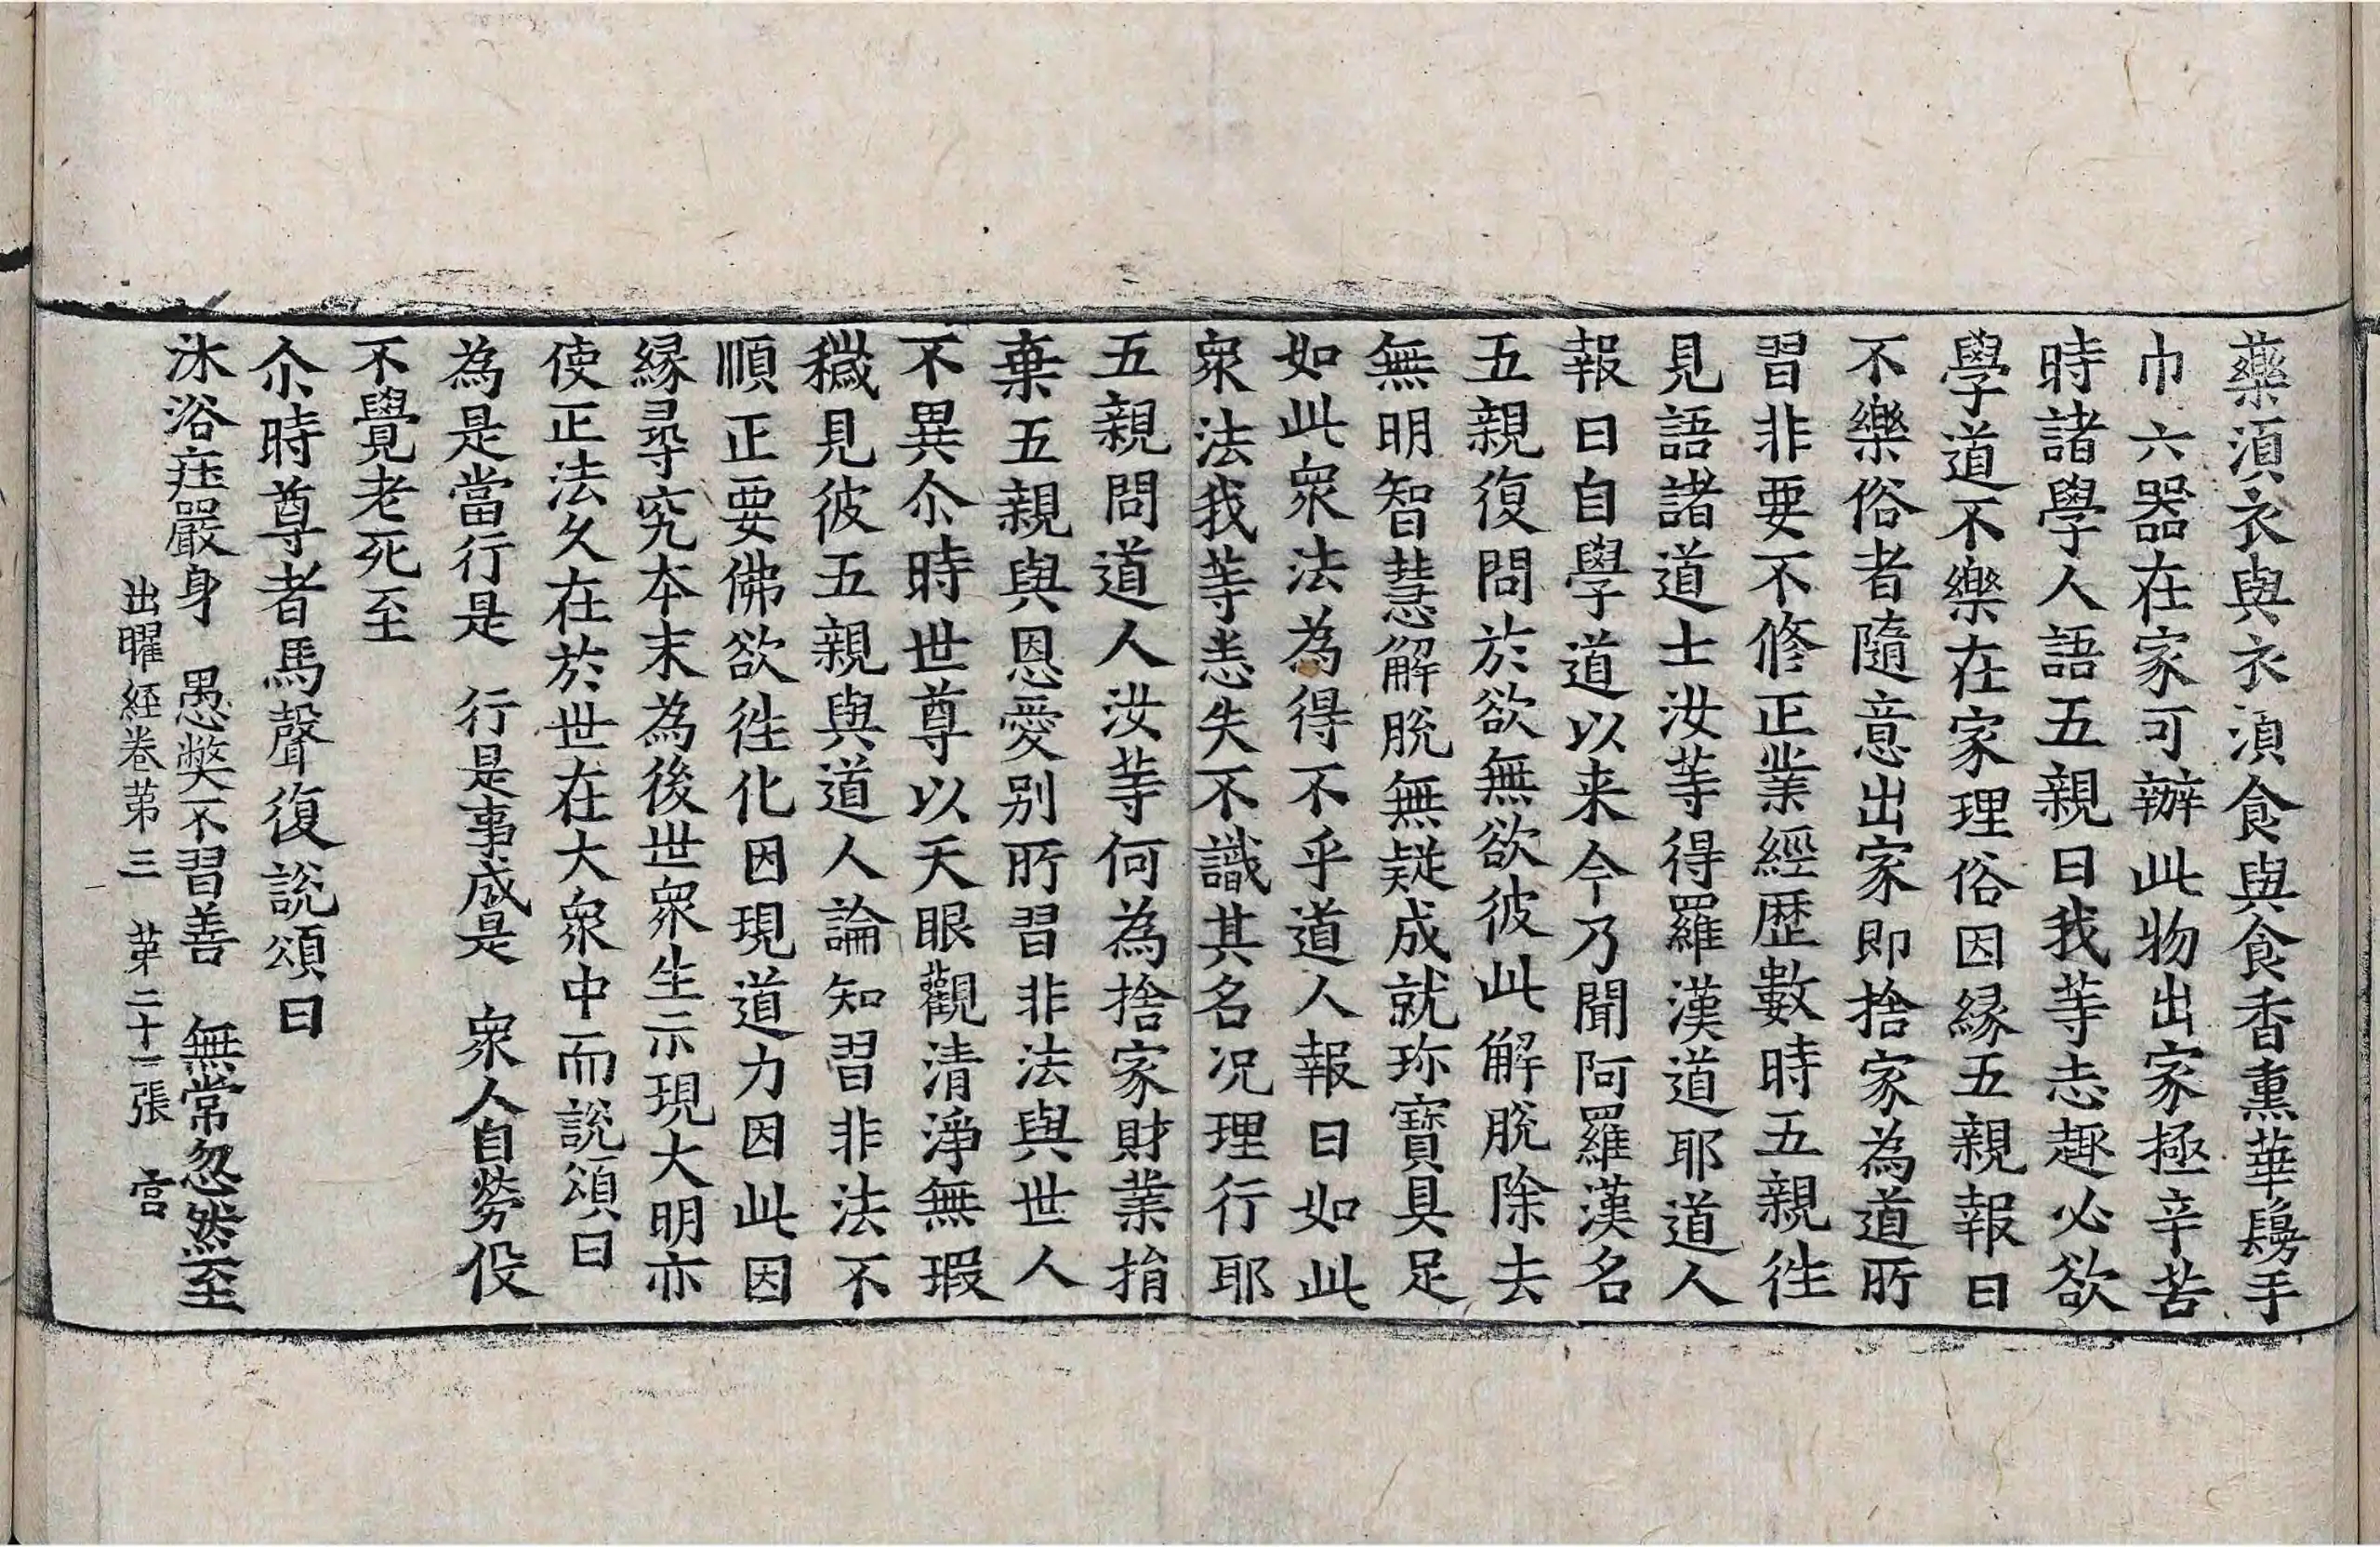 藥湏衣與衣湏食與食香熏華鬘手
巾六器在家可辦此物出家極辛苦
時諸學人語五親曰我䓁志趣必欲
學道不樂在家理俗因緣五親報曰
不樂俗者隨意出家即捨家為道所
習非要不修正業經歷數時五親徃
見語諸道士汝䓁得羅漢道耶道人
報曰自學道以来今乃聞阿羅漢名
五親復問於欲無欲彼此解脫除去
無明智慧解脫無疑成就珎寶具足
如此衆法為得不乎道人報曰如此
衆法我䓁悉失不識其名况理行耶
五親問道人汝䓁何為捨家財業捐
棄五親與恩愛別所習非法與世人
不異尒時世尊以天眼觀清淨無瑕
穢見彼五親與道人論知習非法不
順正要佛欲徃化因現道力因此因
緣尋究本末為後世衆生示現大明亦
使正法久在於世在大衆中而說頌曰
為是當行是　行是事成是　衆人自勞役
不覺老死至
尒時尊者馬聲復說頌曰
沐浴㽵嚴身　愚弊不習善　無常忽然至
出曜經卷苐三　苐二十一張　宫